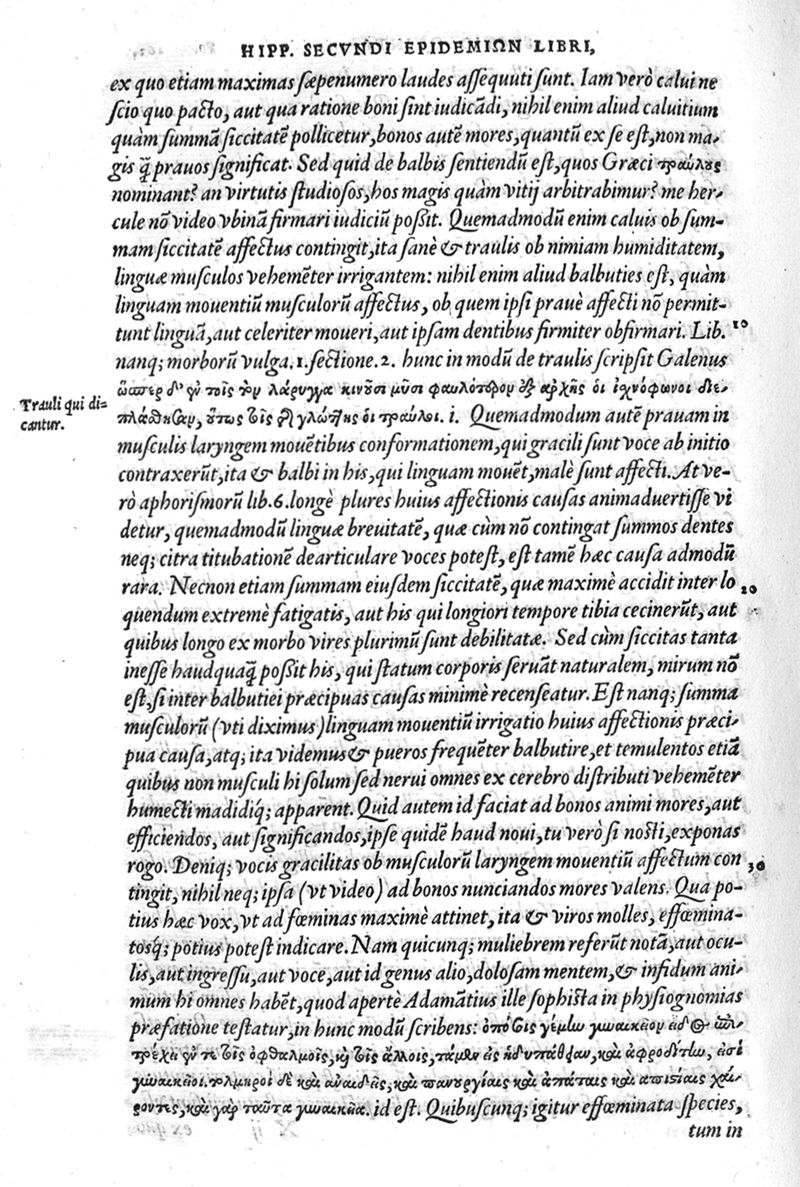 HIPP. SECVNDI EPIDEMIΩN LIBRI,
ex quo etiam maximas sæpenumero laudes assequuti sunt. Iam verò calui ne
scio quo pacto, aut qua ratione boni sint iudicādi, nihil enim aliud caluitium
quàm summā siccitatē pollicetur, bonos autē mores, quantū ex se est, non ma-
gis q̃ prauos significat. Sed quid de balbis sentiendū est, quos Græci τραύλους
nominant? an virtutis studiosos, hos magis quàm vitij arbitrabimur? me her-
cule nō video vbinā firmari iudiciū possit. Quemadmodū enim caluis ob sum-
mam siccitatē affectus contingit, ita sanè & traulis ob nimiam humiditatem,
linguæ musculos vehemēter irrigantem: nihil enim aliud balbuties est, quàm
linguam mouentiū musculorū affectus, ob quem ipsi prauè affecti nō permit-
tunt linguā, aut celeriter moueri, aut ipsam dentibus firmiter obfirmari. Lib. 10
nanq; morborū vulga. 1. sectione. 2. hunc in modū de traulis scripsit Galenus
ὥσπερ δ' οὖν τοῖς τὸν λάρυγγα κινοῦσι μυσὶ φαυλότερον ἐξ ἀρχῆς οἱ ἰχνόφωνοι διε-
Trauli qui di=
cantur.
πλάσθησαν, οὕτως τοῖς τῆς γλώττης οἱ τραυλοι. i. Quemadmodum autē prauam in
musculis laryngem mouētibus conformationem, qui gracili sunt voce ab initio
contraxerūt, ita & balbi in his, qui linguam mouēt, malè sunt affecti. At ve-
rò aphorismorū lib. 6. longè plures huius affectionis causas animaduertisse vi
detur, quemadmodū linguæ breuitatē, quæ cùm nō contingat summos dentes
neq; citra titubationē dearticulare voces potest, est tamē hæc causa admodū
rara. Necnon etiam summam eiusdem siccitatē, quæ maximè accidit inter lo 20
quendum extremè fatigatis, aut his qui longiori tempore tibia cecinerūt, aut
quibus longo ex morbo vires plurimū sunt debilitatæ. Sed cùm siccitas tanta
inesse haudquaq̃ possit his, qui statum corporis seruāt naturalem, mirum nō
est, si inter balbutiei præcipuas causas minimè recenseatur. Est nanq; summa
musculorū (vti diximus) linguam mouentiū irrigatio huius affectionis præci-
pua causa, atq; ita videmus & pueros frequēter balbutire, et temulentos etiā
quibus non musculi hi solum sed nerui omnes ex cerebro distributi vehemēter
humecti madidiq́; apparent. Quid autem id faciat ad bonos animi mores, aut
efficiendos, aut significandos, ipse quidē haud noui, tu verò si nosti, exponas
rogo. Deniq; vocis gracilitas ob musculorū laryngem mouentiū affectum con 30
tingit, nihil neq; ipsa (vt video) ad bonos nunciandos mores valens. Qua po-
tius hæc vox, vt ad fœminas maximè attinet, ita & viros molles, effœmina-
tosq́; potius potest indicare. Nam quicunq; muliebrem referūt notā, aut ocu-
lis, aut ingressu, aut voce, aut id genus alio, dolosam mentem, & infidum ani-
mum hi omnes habēt, quod apertè Adamātius ille sophista in physiognomias
præfatione testatur, in hunc modū scribens: γυναικεῖον εἶδος
τοῖς ὀφθαλμοῖς, καὶ τοῖς ἄλλοις, καὶ ἀφροδίτην,
γυναικεῖοι. τολμηροὶ δὲ καὶ ἀναιδεῖς, καὶ πανουργίαις καὶ ἀπάταις καὶ ἀπιστίαις χαί-
ροντες, καὶ γὰρ ταῦτα γυναικεῖα. id est. Quibuscunq; igitur effœminata species,
tum in